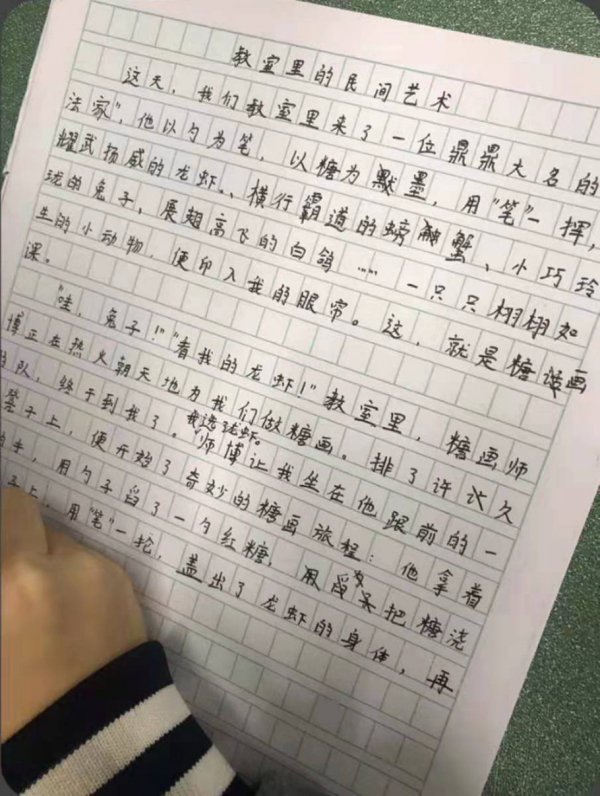 教室里的民间艺术
这天，我们教室里来了一位鼎鼎大名的
法家”，他以勺为笔，以糖为墨，用“笔”一挥，
耀武扬威的龙虾、横行霸道的螃蟹、小巧玲
珑的兔子、展翅高飞的白鸽……一只只栩栩如
生的小动物，便印入我的眼帘。这，就是糖画
课。
“哇，兔子！”“看我的龙虾！”教室里，糖画师
博正在热火朝天地为我们做糖画。排了许久
队，终于到我了。我选龙虾。师博让我坐在他跟前的一
凳子上，便开始了奇妙的糖画旅程：他拿着
用勺子舀了一勺红糖，用把糖浇
子上，用“笔”一抡，盖出了龙虾的身体，再